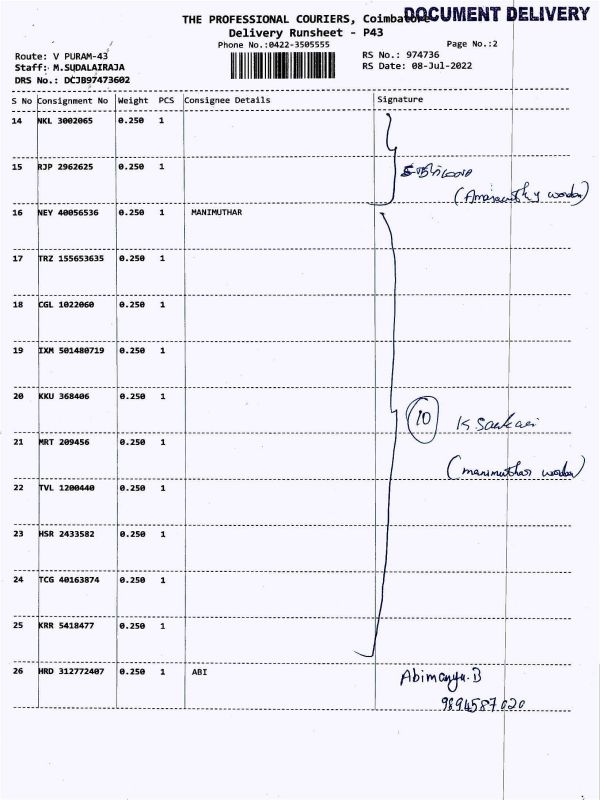 THE PROFESSIONAL COURIERS, Coimbatore
DOCUMENT DELIVERY
Delivery Runsheet - P43
Phone No.:0422-3505555
Page No.:2
Route: V PURAM-43
RS No.: 974736
Staff: M.SUDALAIRAJA
RS Date: 08-Jul-2022
DRS No.: DCJB97473602
S No Consignment No Weight PCS Consignee Details Signature
14 NKL 3002065 0.250 1
15 RJP 2962625 0.250 1
16 NEY 40056536 0.250 1 MANIMUTHAR
17 TRZ 155653635 0.250 1
18 CGL 1022060 0.250 1
19 IXM 501480719 0.250 1
20 KKU 368406 0.250 1
10
21 MRT 209456 0.250 1
(manimuthar warden)
22 TVL 1200440 0.250 1
23 HSR 2433582 0.250 1
24 TCG 40163874 0.250 1
25 KRR 5418477 0.250 1
26 HRD 312772407 0.250 1 ABI
Abimanyu.B
9894587020